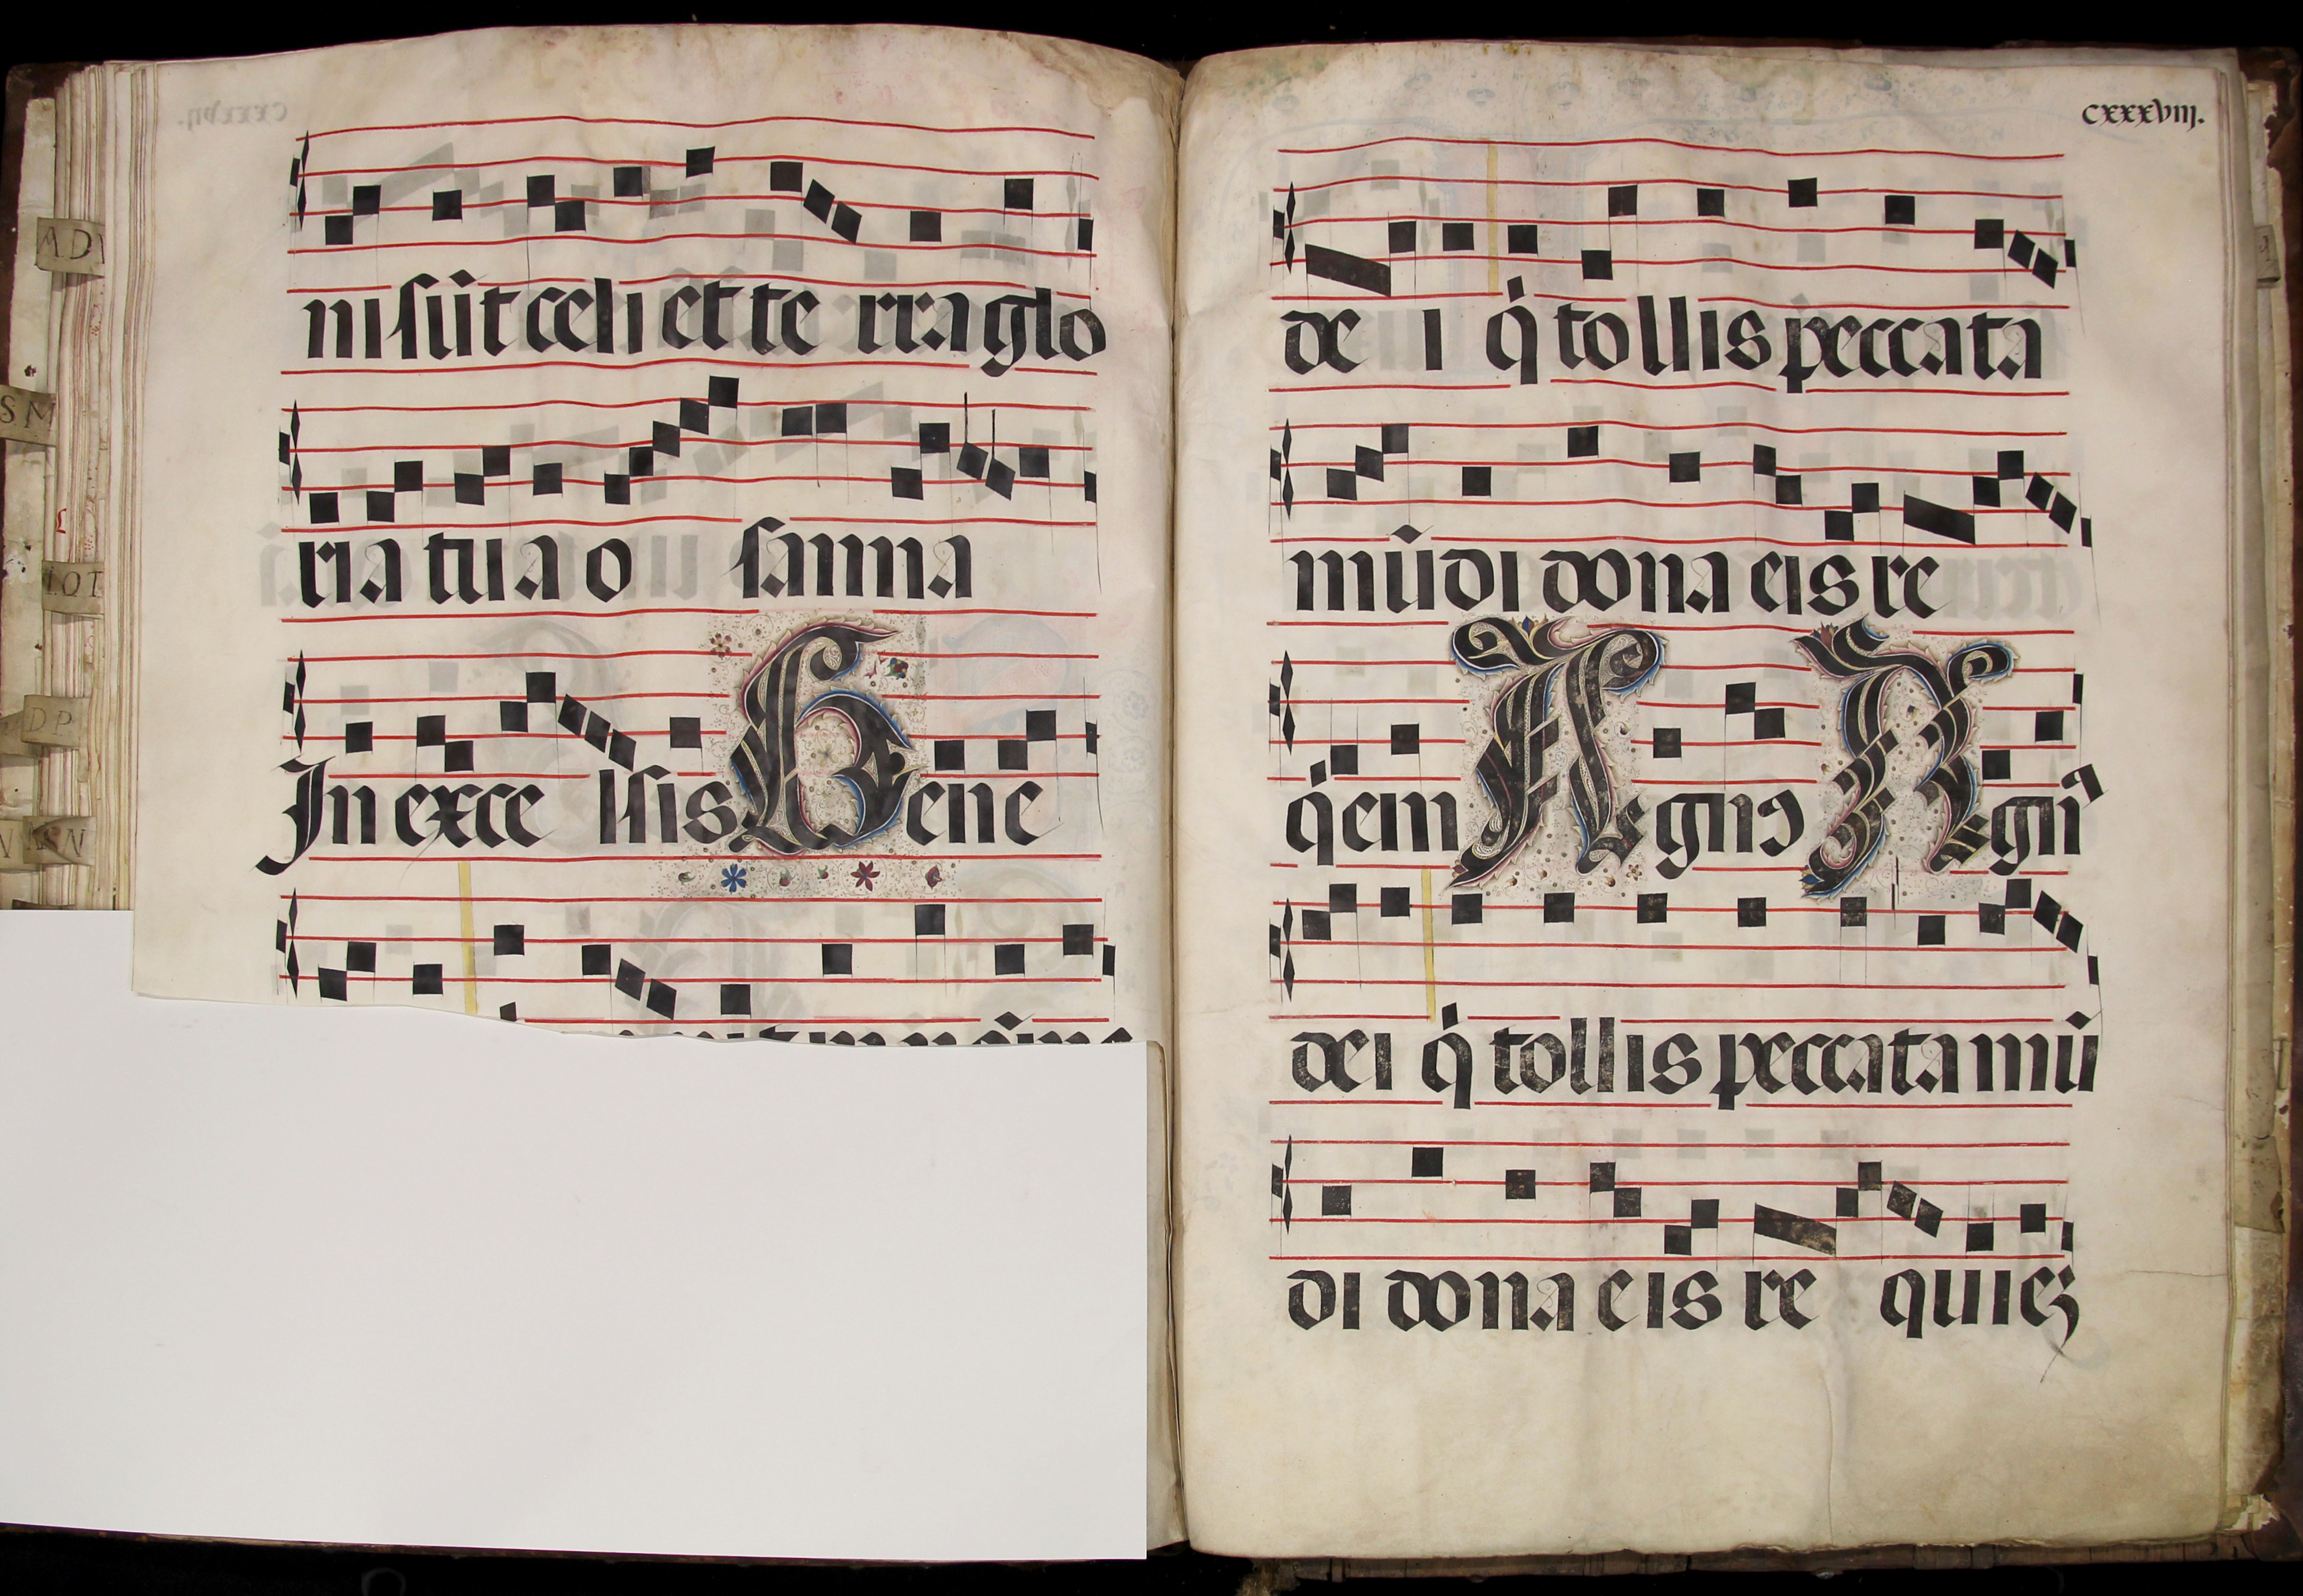 ni sūt celi et te rra glo
ria tua o sanna
In exce lsis Bene
cxxxviij.
de i q̇ tollis peccata
mūdi dona eis re
q̇em Agnɔ Agnꝰ
dei q̇ tollis peccata mū
di dona eis re quieʒ
AD
SM
LOT
DP
SN